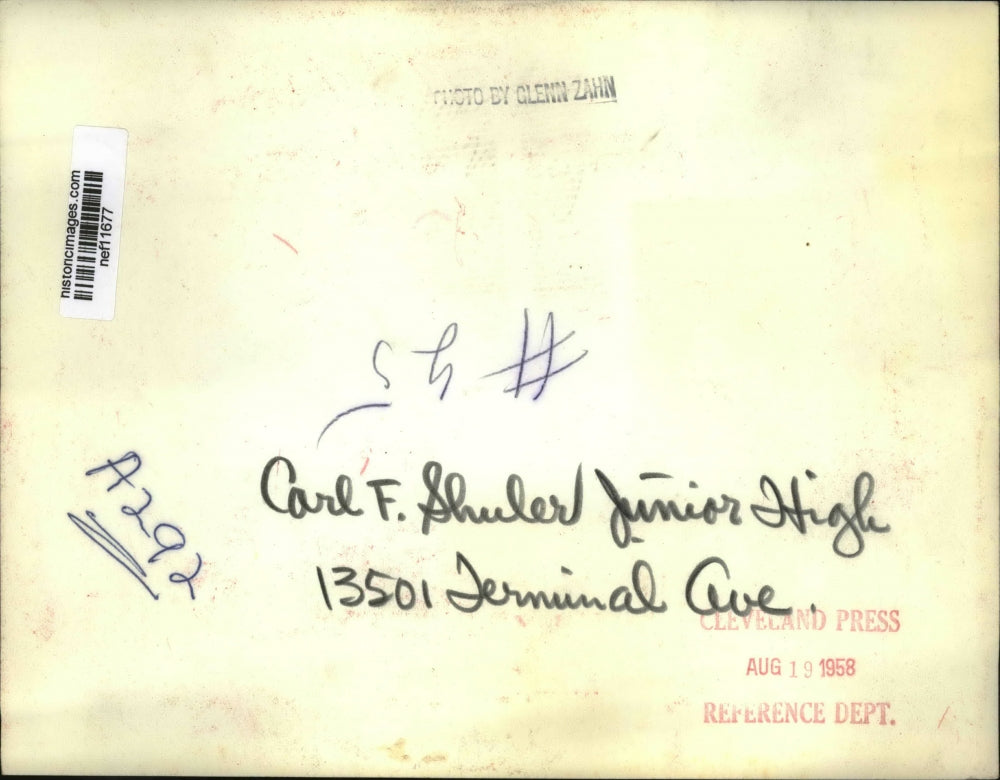 PHOTO BY GLENN ZAHN
historicimages.com
nef11677
# 45
A292
Carl F. Shuler Junior High
13501 Terminal Ave.
CLEVELAND PRESS
AUG 19 1958
REFERENCE DEPT.